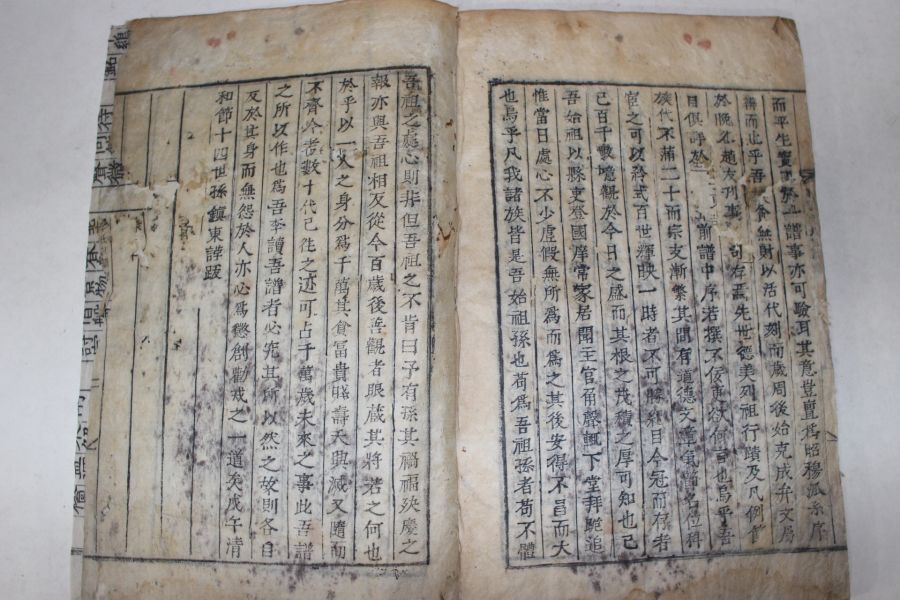 而平生實事於此譜事亦可驗耳其意豈亶爲昭穆派系序
辨而止乎吾 無財以活代刻而歲周後始克成弁文居
於 趙友刋事 旬存焉先世德美列祖行蹟及凡例
目俱詳於 前譜中序若撰不佞 何言也烏乎吾
族代不蒲二十而宗支漸繁其間有道德文章氣 名位科
宦之可以矜式百世輝映一時者不可勝縷目今冠而存者
已百千數噫觀於今日之盛而其根之茂積之厚可知也已
吾始祖以縣吏登國庠常家居聞主官角聲輒下堂拜跪追
惟當日處心不少虛假無所爲而爲之其後安得不昌而大
也烏乎凡我諸族皆是吾始祖孫也苟爲吾祖孫者苟不體
吾祖之處心則非但吾祖之不肯曰予有孫其禍福殃慶之
報亦與吾祖相反從今百歲後善觀者眼蔵其將若之何也
於乎以一人之身分爲千萬其貪冨貴賤壽夭興滅又隨而
不齊今者數十代已徃之迹可占千萬歲未來之事此吾譜
之所以作也爲吾李讀吾譜者必究其所以然之故則各自
反於其身而無怨於人亦必爲懲創勸戒之一道矣戊午清
和節十四世孫鎭東謹跋